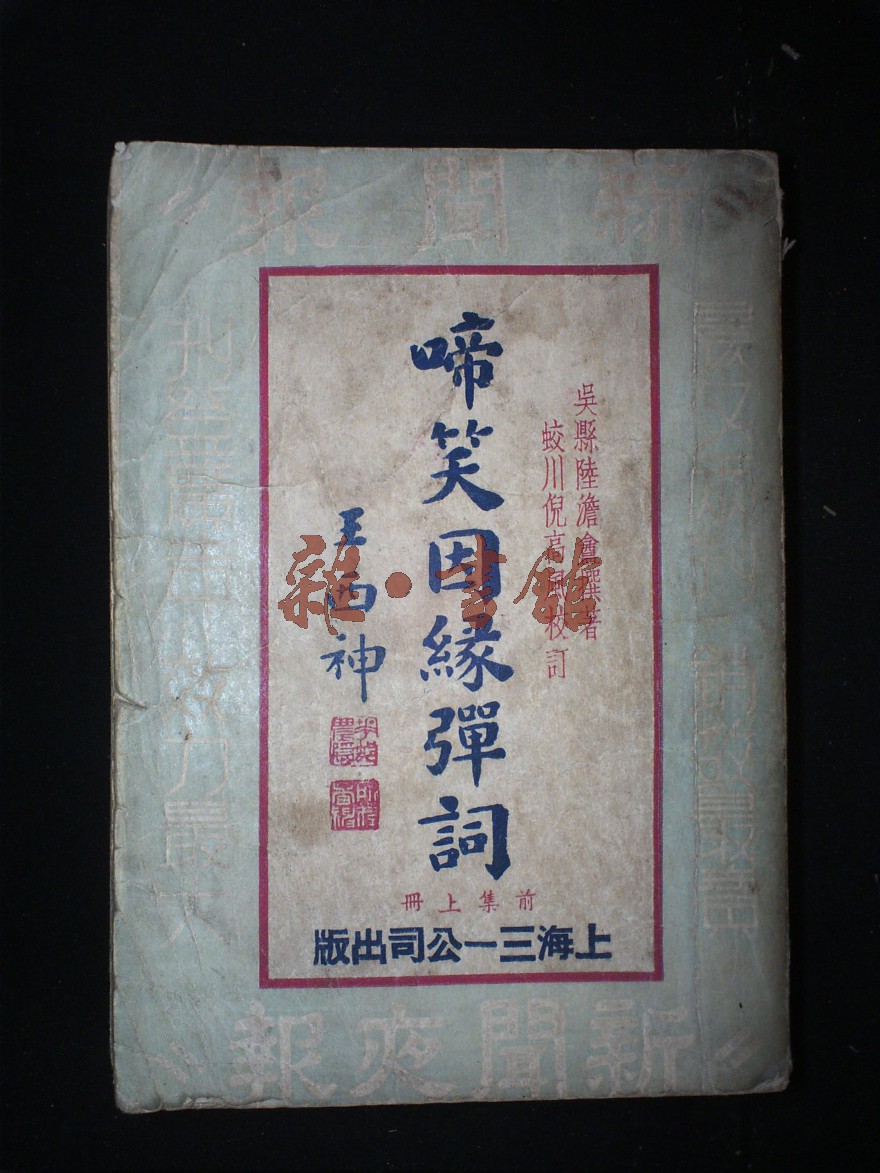 新聞報
吳縣陸澹盦撰著
蛟川倪高風校訂
啼笑因緣彈詞
王西神
前集上冊
上海三一公司出版
刊登廣告效力最大
新聞夜報
雜·書館